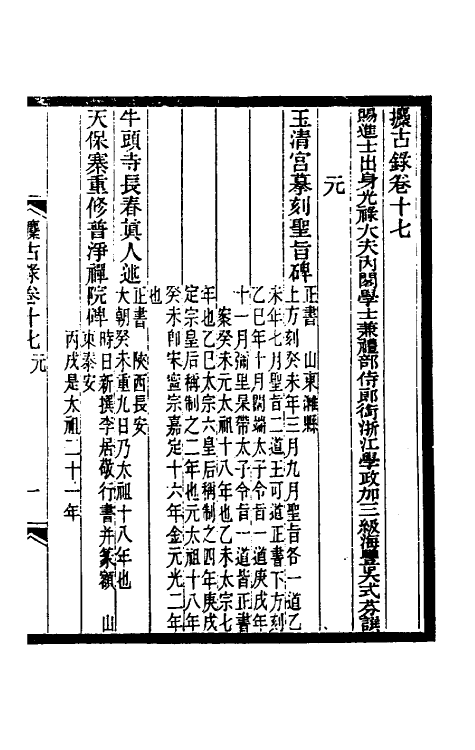 攈古錄卷十七
賜進士出身光祿大夫內閣學士兼禮部侍郎銜浙江學政加三級海豐吳式芬譔
元
玉清宮摹刻聖旨碑
正書　山東濰縣
上方刻癸未年三月九月聖旨各一道乙
未年七月聖旨二道王可道正書下方刻
乙巳年十月闊端太子令旨一道庚戌年
十一月彌里杲帶太子令旨一道皆正書
案癸未元太祖十八年也乙未太宗七
年也乙巳太宗六皇后稱制之四年庚戌
定宗皇后稱制之二年也元太祖十八年
癸未卽宋寧宗嘉定十六年金元光二年
也
牛頭寺長春眞人述
正書　陝西長安
大朝癸未重九日乃太祖十八年也
天保寨重修普淨禪院碑
時日新撰李居敬行書并篆額　山
東泰安
丙戌是太祖二十一年
攈古錄卷十七　元
一